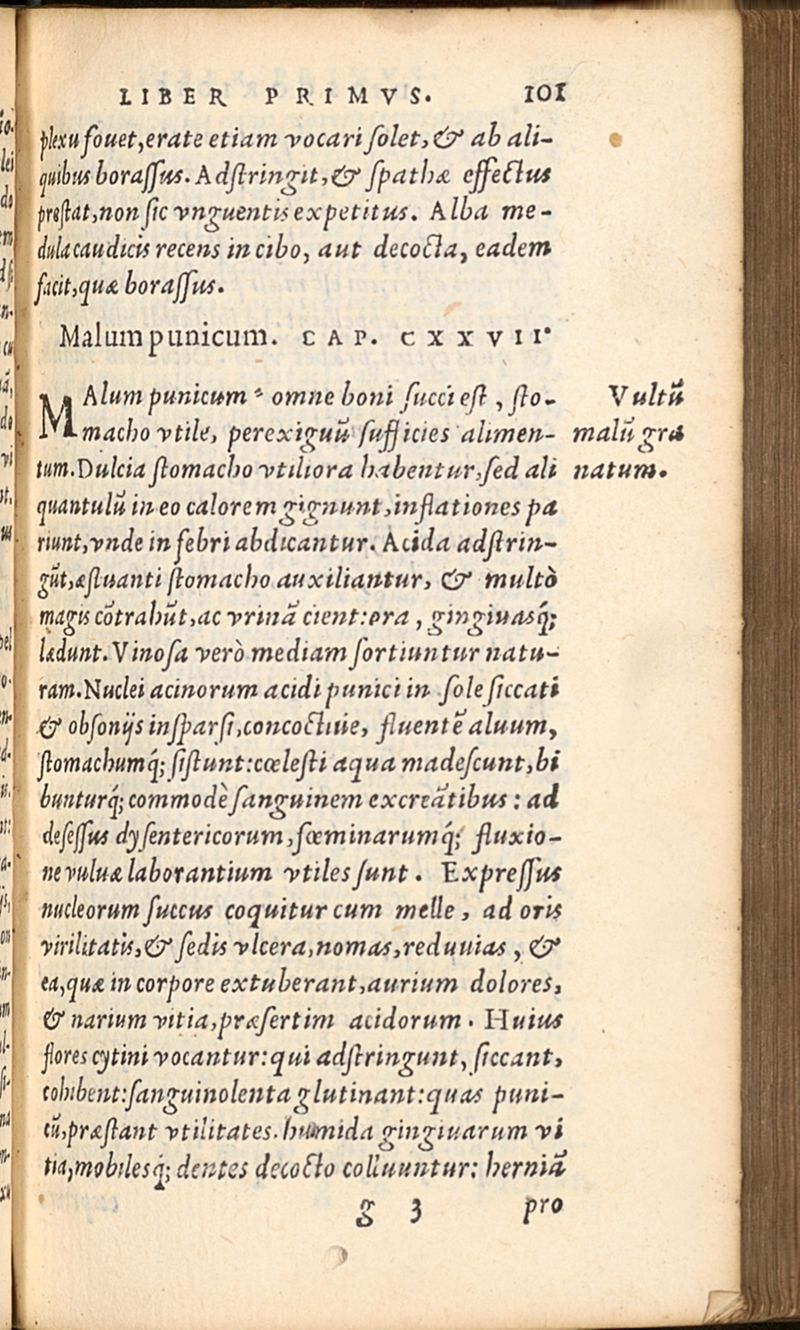 LIBER PRIMVS. 101
plexu fouet, erate etiam vocari solet, & ab ali-
quibus borassus. Adstringit, & spathæ effectus
præstat, non sic vnguentis expetitus. Alba me-
dula caudicis recens in cibo, aut decocta, eadem
facit, quæ borassus.
Malum punicum. CAP. CXXVII.
MAlum punicum omne boni succi est, sto-
macho vtile, perexiguũ sufficies alimen-
tum. Dulcia stomacho vtiliora habentur, sed ali
quantulũ in eo calorem gignunt, inflationes pa
riunt, vnde in febri abdicantur. Acida adstrin-
gũt, æstuanti stomacho auxiliantur, & multò
magis cõtrahũt, ac vrinã cient: ora, gingiuasq́;
lædunt. Vinosa verò mediam sortiuntur natu-
ram. Nuclei acinorum acidi punici in sole siccati
& obsonijs insparsi, concoctiuẽ, fluentẽ aluum,
stomachumq́; sistunt: cœlesti aqua madescunt, bi
bunturq́; commodè sanguinem excreãtibus: ad
desessus dysentericorum, fœminarumq́; fluxio-
ne vuluæ laborantium vtiles sunt. Expressus
nucleorum succus coquitur cum melle, ad oris
virilitatis, & sedis vlcera, nomas, reduuias, &
ea, quæ in corpore extuberant, aurium dolores,
& narium vitia, præsertim acidorum. Huius
flores cytini vocantur: qui adstringunt, siccant,
cohibent: sanguinolenta glutinant: quas puni-
cũ, præstant vtilitates. humida gingiuarum vi
tia, mobilesq́; dentes decocto colluuntur: herniã
g 3 pro
Vultũ
malũ gra
natum.